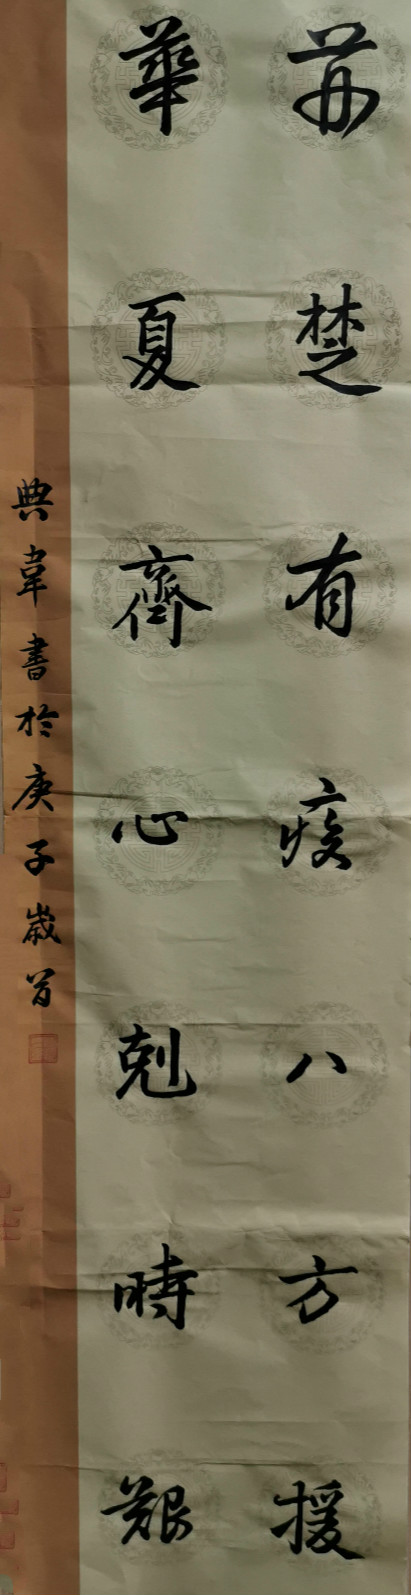 荆楚有疫八方援
華夏齊心剋時艱
典韋書於庚子歲首